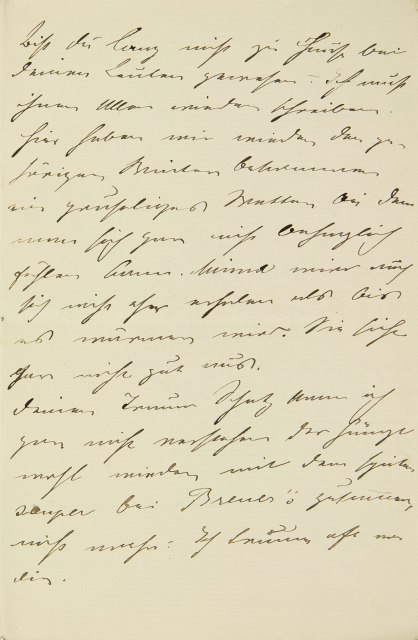 bist du lang nicht zu Hause bei
deinen Leuten gewesen – ich muß
ihnen allen wieder schreiben.
Hier haben wir wieder den ge-
hörigen Winter bekommen
ein gruseliges Wetter bei dem
man sich gar nicht behaglich
fühlen kann. Minna wird auch
sich nicht eher erholen als bis
es wärmer wird. Sie sieht
gar nicht gut aus.
Deinen Traum Schatz kann ich
gar nicht verstehen der hängt
wohl wieder mit dem späten
souper bei Breuer's zusammen,
nicht wahr? Ich träume oft von
dir.